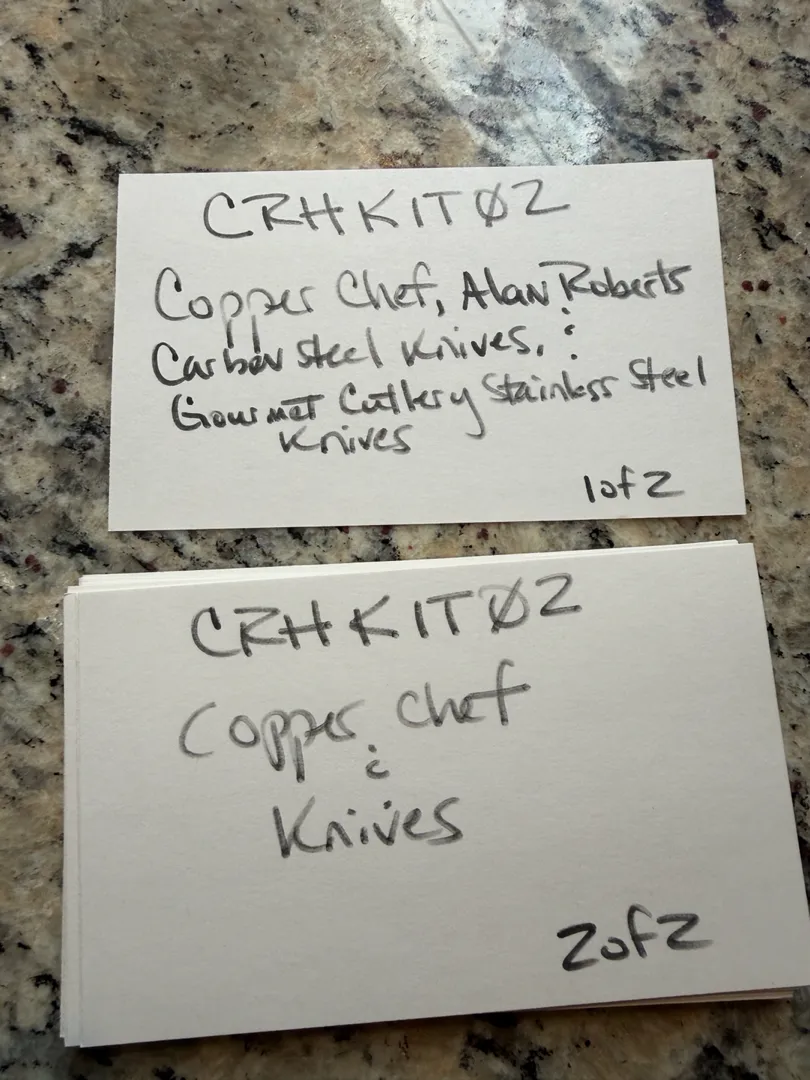 CRHKITØ2
Copper Chef, Alan Roberts
Carbon Steel Knives, &
Gourmet Cutlery Stainless Steel
Knives
1 of 2
CRHKITØ2
Copper Chef
&
Knives
2 of 2